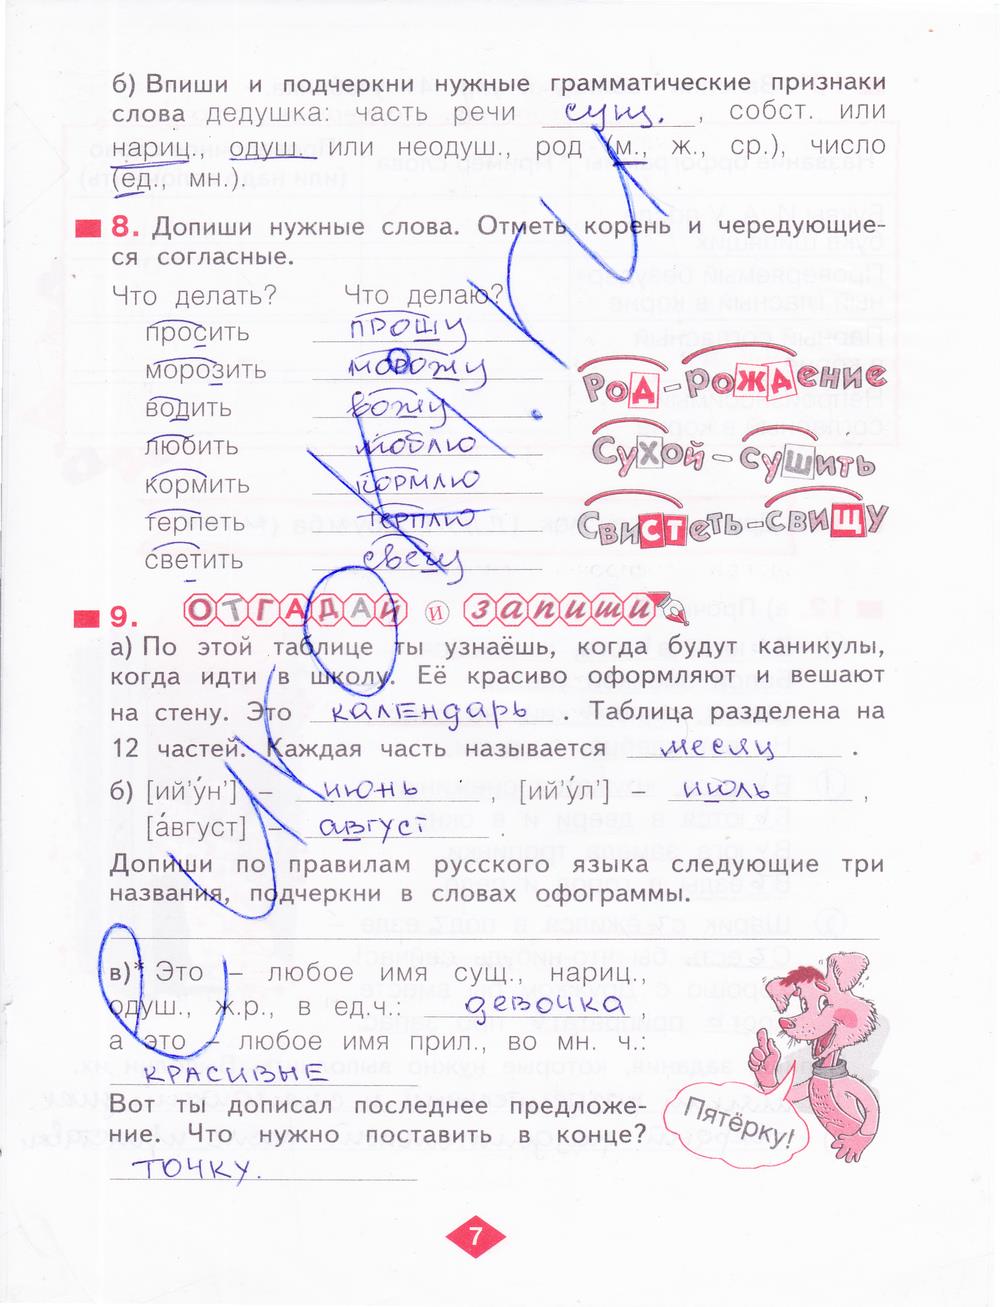 б) Впиши и подчеркни нужные грамматические признаки
слова дедушка: часть речи сущ. , собст. или
нариц., одуш. или неодуш., род (м., ж., ср.), число
(ед., мн.).
8. Допиши нужные слова. Отметь корень и чередующие-
ся согласные.
Что делать? Что делаю?
просить прошу
морозить морожу
водить вожу
любить люблю
кормить кормлю
терпеть терплю
светить свечу
Род – рождение
Сухой – сушить
Свистеть – свищу
9. ОТГАДАЙ и запиши
а) По этой таблице ты узнаёшь, когда будут каникулы,
когда идти в школу. Её красиво оформляют и вешают
на стену. Это календарь . Таблица разделена на
12 частей. Каждая часть называется месяц .
б) [ий'у́н'] – июнь , [ий'у́л'] – июль ,
[а́вгуст] – август .
Допиши по правилам русского языка следующие три
названия, подчеркни в словах офограммы.
в)* Это – любое имя сущ., нариц.,
одуш., ж.р., в ед.ч.: девочка
а это – любое имя прил., во мн. ч.:
красивые
Вот ты дописал последнее предложе-
ние. Что нужно поставить в конце?
точку.
Пятёрку!
7